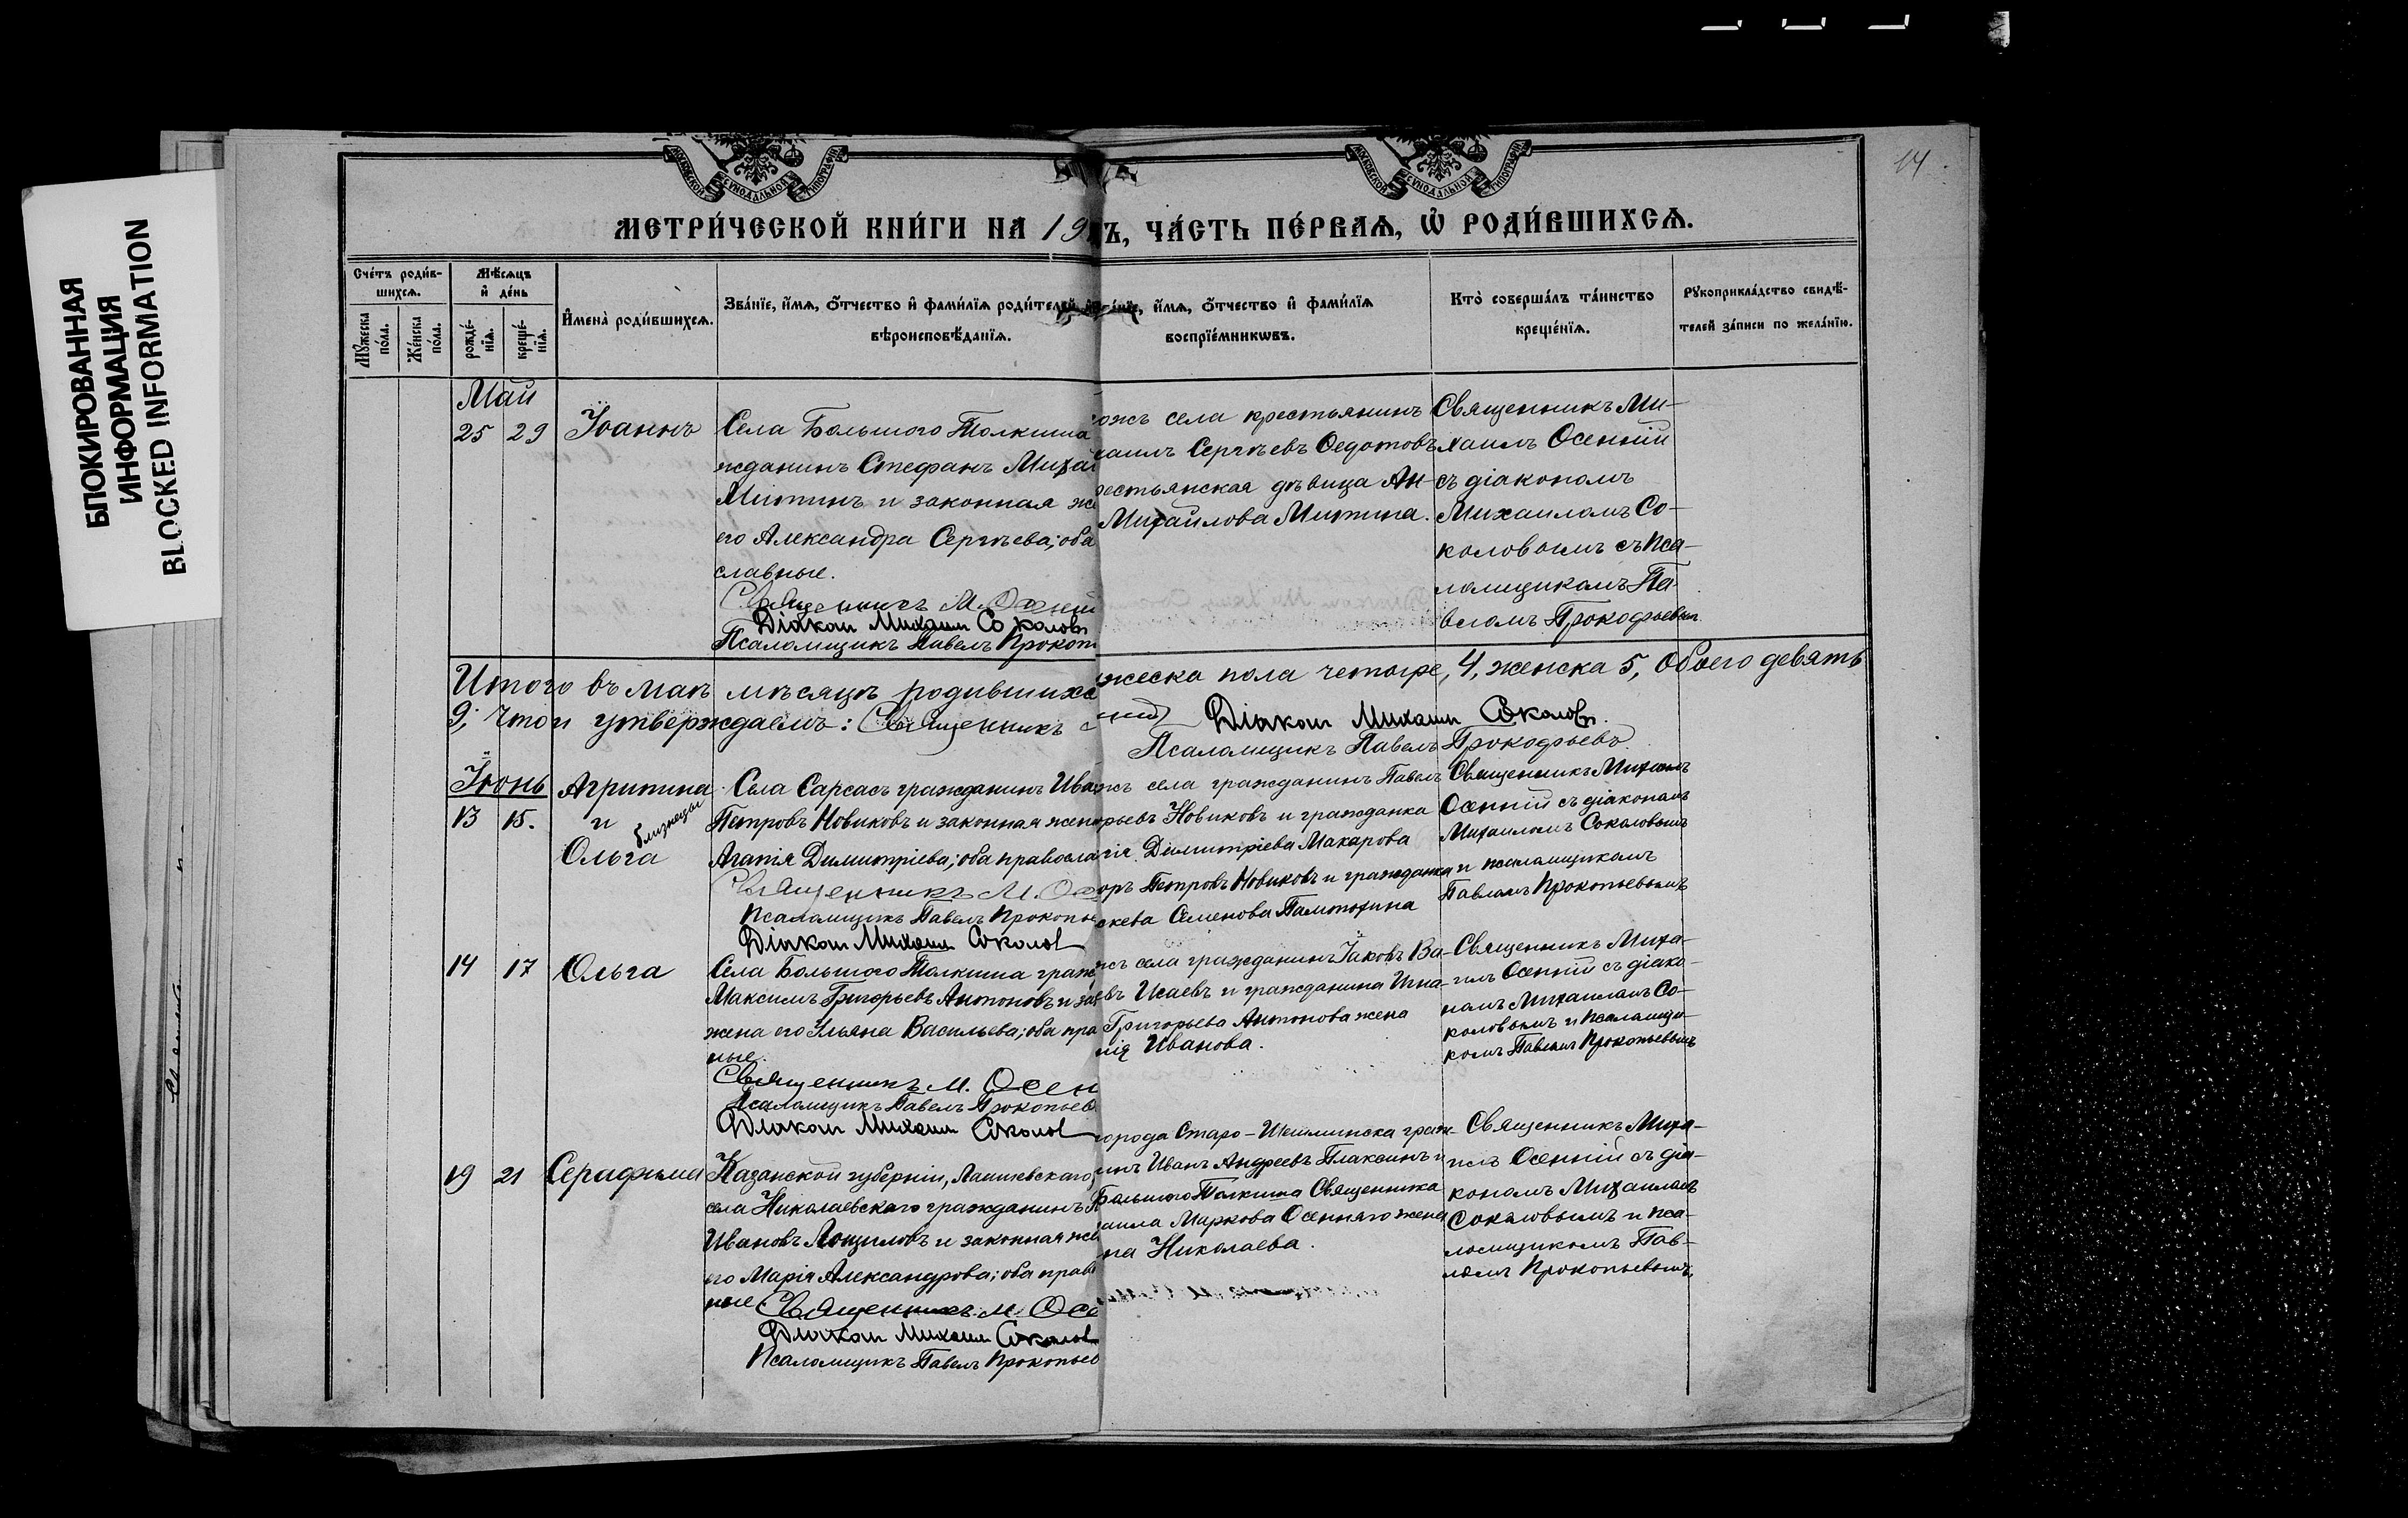 БЛОКИРОВАННАЯ
ИНФОРМАЦИЯ
BLOCKED INFORMATION
14
МОСКОВСКОЙ СѴНОДАЛЬНОЙ ТИПОГРАФІИ
МОСКОВСКОЙ СѴНОДАЛЬНОЙ ТИПОГРАФІИ
МЕТРИ́ЧЕСКОЙ КНИ́ГИ НА 19
Ъ, ЧА́СТЬ ПЕ́РВАѦ, Ѡ҆ РОДИ́ВШИХСѦ.
Сче́тъ роди́в-
шихсѧ.
Мѣ́сѧцъ
и҆ де́нь
Мꙋ́жеска
по́ла.
Же́нска
по́ла.
рожде́-
нїѧ.
креще́-
нїѧ.
И҆мена̀ роди́вшихсѧ.
Зва́нїе, и҆́мѧ, ѻ҆́тчество и҆ фами́лїѧ роди́телей,
вѣроисповѣ́данїѧ.
и҆́мѧ, ѻ҆́тчество и҆ фами́лїѧ
воспрїе́мникѡвъ.
Кто̀ соверша́лъ та́инство
креще́нїѧ.
Рꙋкоприкла́дство свидѣ́-
телей за́писи по жела́нїю.
Май
25 29 Іоаннъ
Села Большого Толкиша
жданинъ Стефанъ Михаи
Митинъ и законная же
его Александра Сергѣева; оба
славные.
Священникъ М. Осенній
Діаконъ Михаилъ Соколовъ
Псаломщикъ Павелъ Прокоп
ожъ села крестьянинъ
хаилъ Сергѣевъ Ѳедотовъ
рестьянская дѣвица Ан-
Михайлова Митина.
Священникъ Ми-
хаилъ Осенній
съ діакономъ
Михаиломъ Со-
коловымъ съ пса-
ломщикомъ Па-
вломъ Прокофьевым
Итого въ маѣ мѣсяцѣ родившихся
жеска пола четыре, 4, женска 5, обоего девять
9; что и утверждаемъ: Священникъ
ній Діаконъ Михаилъ Соколовъ.
Псаломщикъ Павелъ Прокофьевъ.
Іюнь
13 15. Агрипина
и
Ольга
близнецы
Села Сарсасъ гражданинъ Ива
Петровъ Новиковъ и законная жен
Агапія Димитріева; оба правосла
Священникъ М. Осе
Псаломщикъ Павелъ Прокопье
Діаконъ Михаилъ Соколов
жъ села гражданинъ Павелъ
орьевъ Новиковъ и гражданка
гія Димитріева Макарова
оръ Петровъ Новиковъ и гражданка
скева Семенова Палютина
Священникъ Михаилъ
Осенній съ діакономъ
Михаиломъ Соколовымъ
и псаломщикомъ
Павломъ Прокопьевымъ
14 17 Ольга
Села Большого Толкиша граж
Максимъ Григорьевъ Антоновъ и за
жена его Ульяна Васильева; оба пра
ные.
Священникъ М. Осен
Псаломщикъ Павелъ Прокопьев
Діаконъ Михаилъ Соколов
жъ села гражданинъ Іаковъ Ва-
евъ Исаевъ и гражданина Игна-
Григорьева Антонова жена
лія Иванова.
Священникъ Миха-
илъ Осенній съ діако-
номъ Михаиломъ Со-
коловымъ и псаломщи-
комъ Павломъ Прокопьевымъ
19 21 Серафима
Казанской губерніи, Лаишевскаго
села Николаевскаго гражданинъ
Ивановъ Лощиловъ и законная же
его Марія Александрова; оба прав
ные. Священникъ М. Осе
Діаконъ Михаилъ Соколов
Псаломщикъ Павелъ Прокопьев
города Старо-Шешминска граж-
инъ Иванъ Андреевъ Плаксинъ и
Большого Толкиша Священника
аила Маркова Осенняго жена
на Николаева.
Священникъ Миха-
илъ Осенній съ діа-
кономъ Михаиломъ
Соколовымъ и пса-
ломщикомъ Пав-
ломъ Прокопьевымъ.